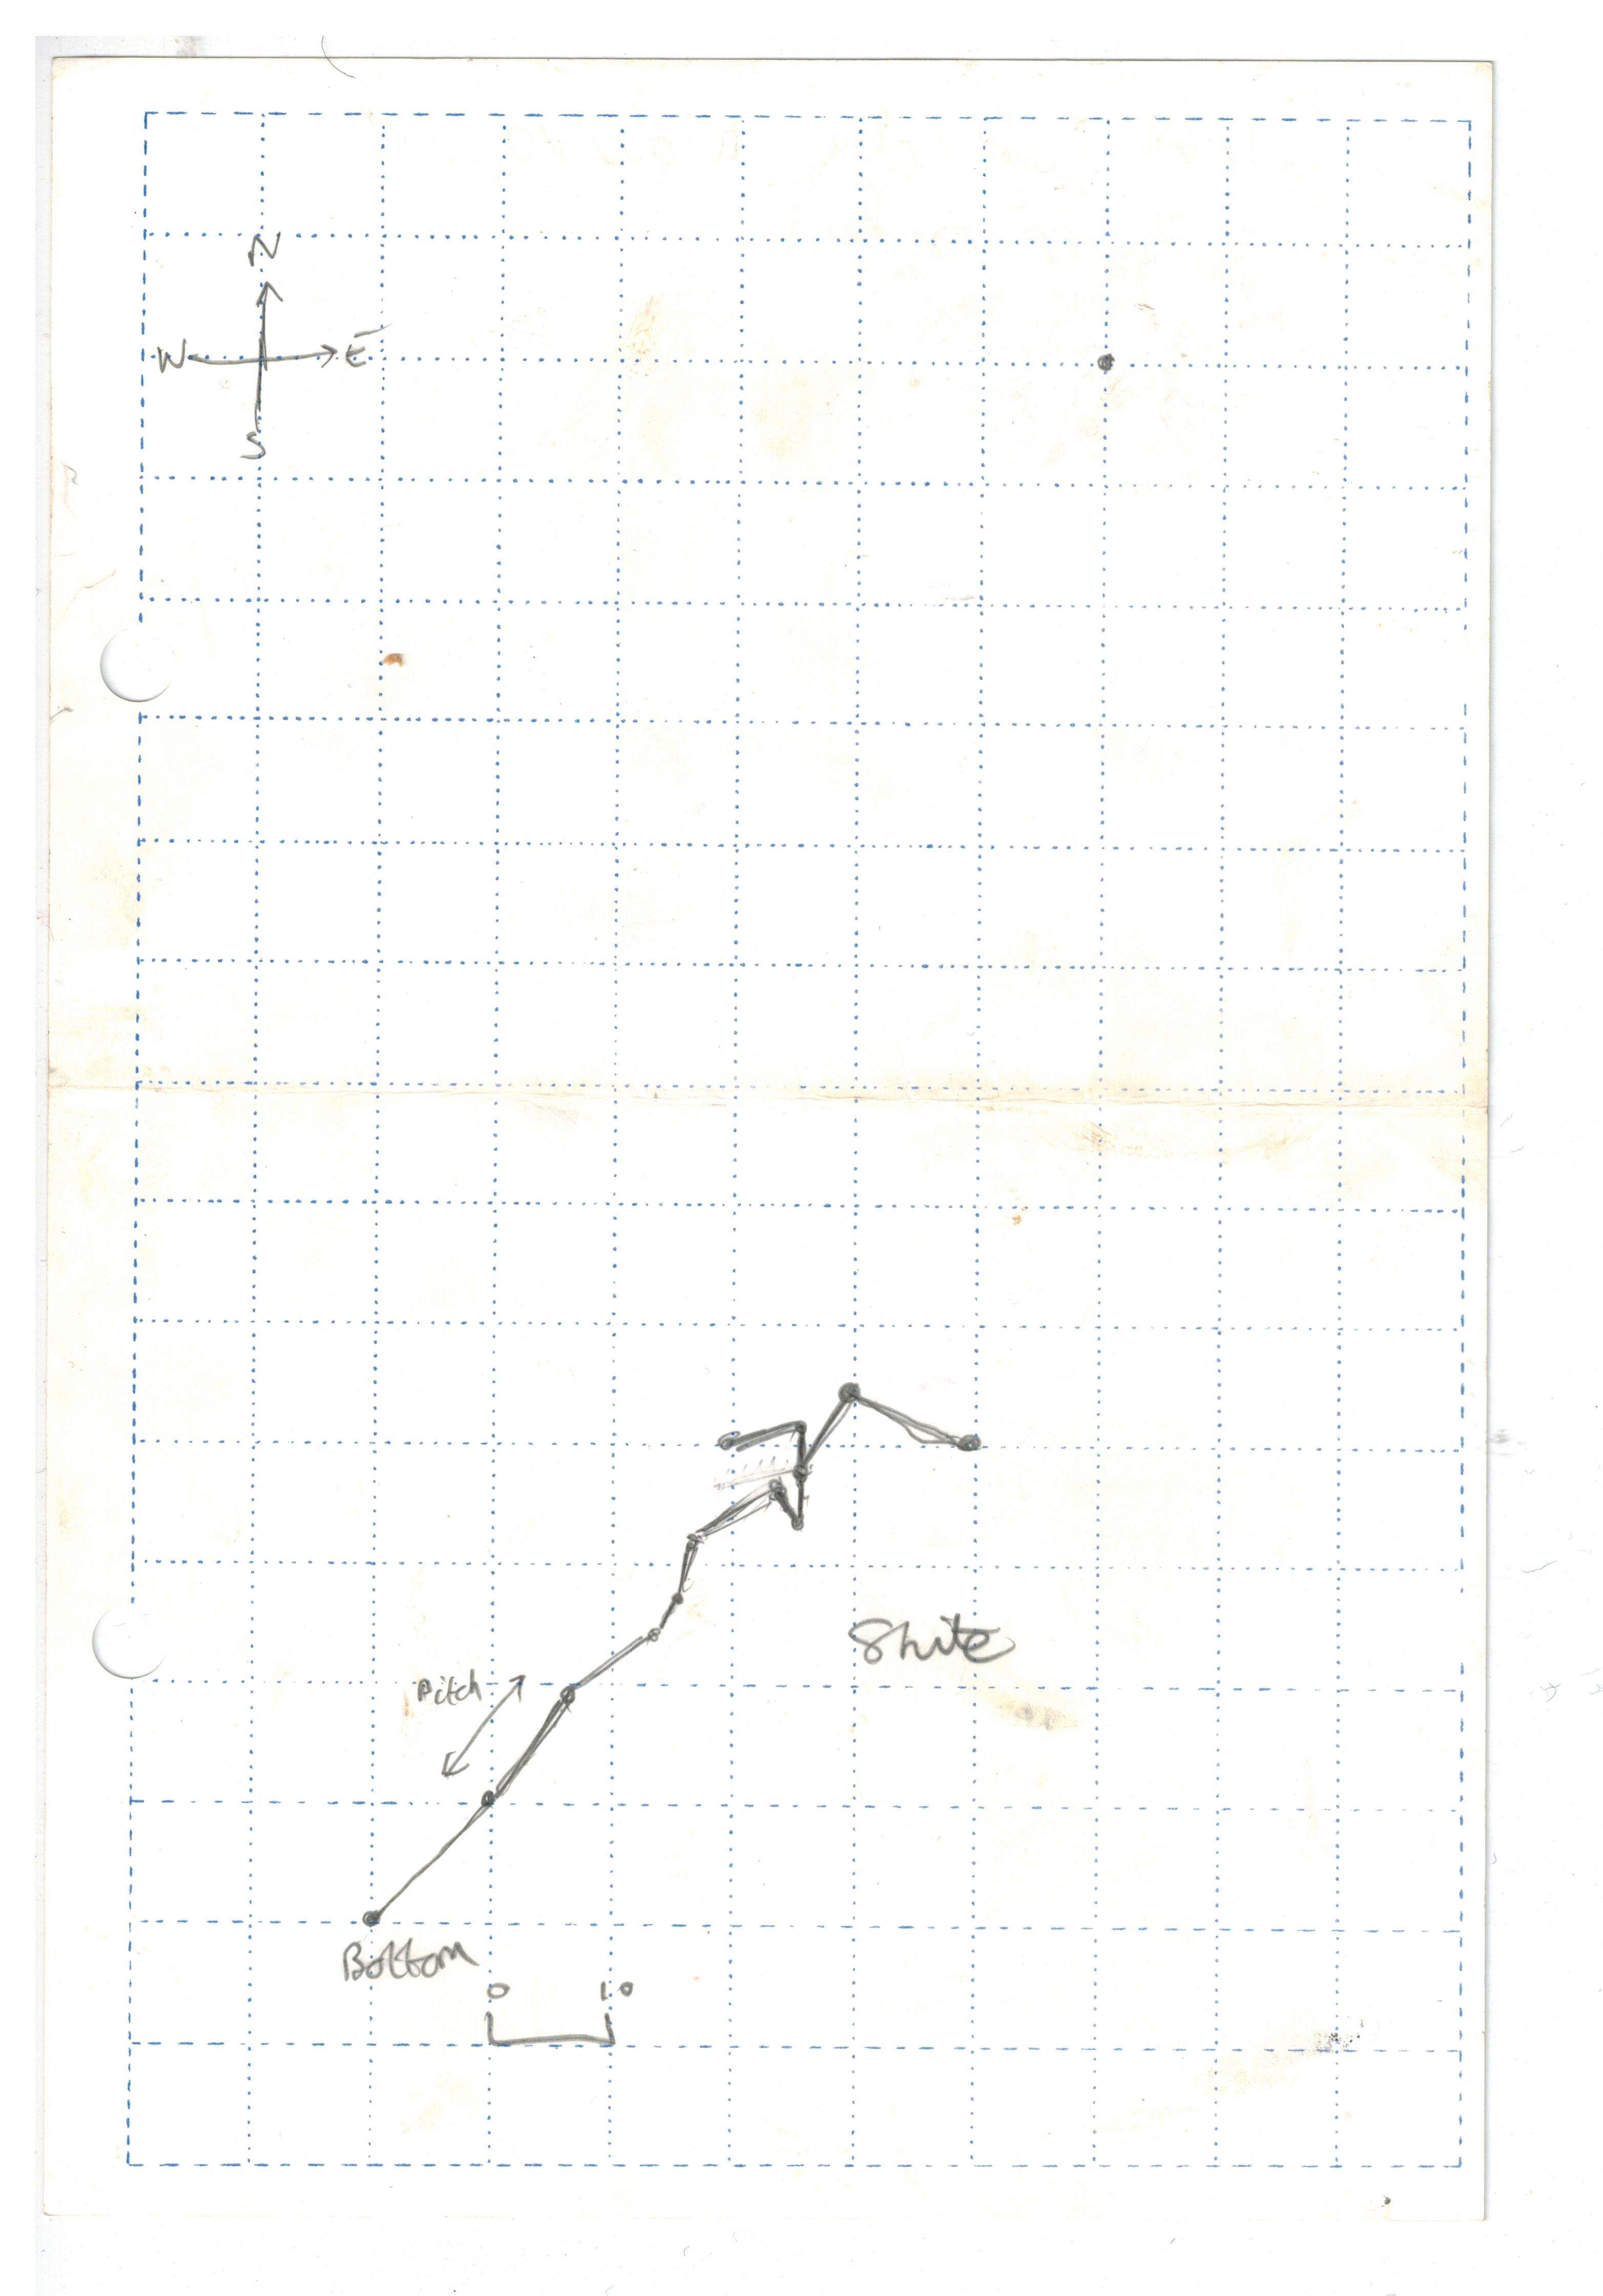 N
W E
S
Shite
Pitch
Bottom
0 10